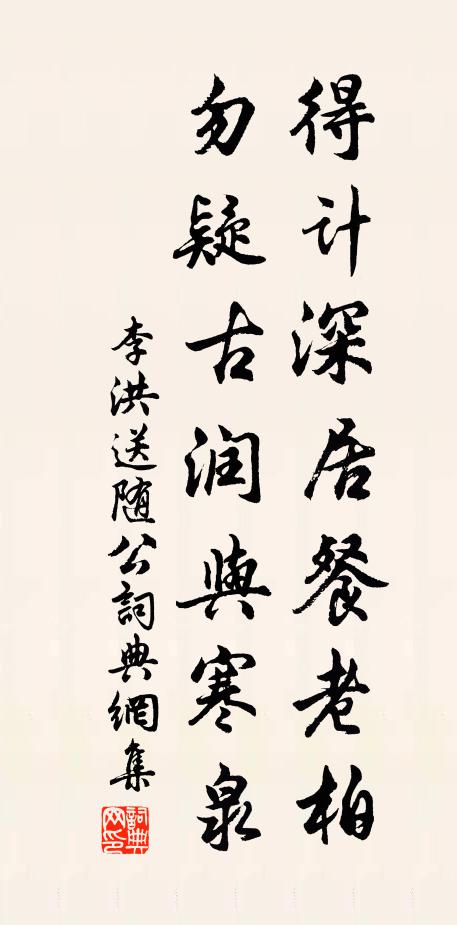 得计深居餐老柏
勿疑古润與寒泉
李洪送随公詞典網集
詞典網印